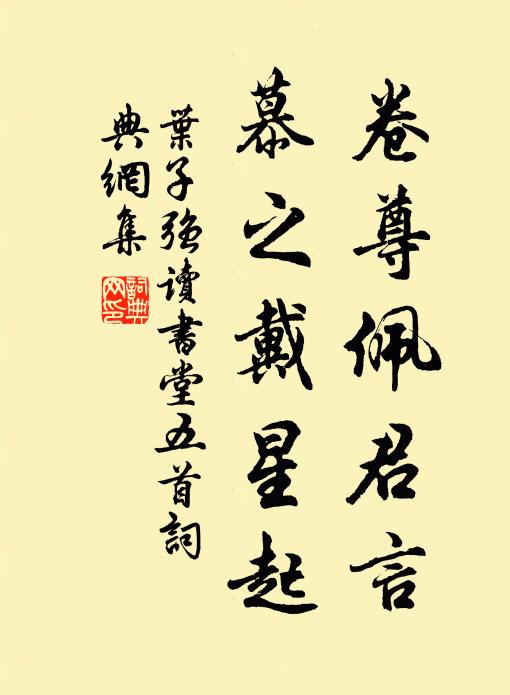 卷尊佩君言
慕之戴星起
葉子強讀書堂五首詞
典網集
詞典
网印